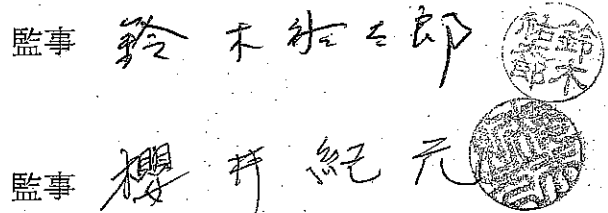 監事 鈴木祐太郎
監事 櫻井紀元